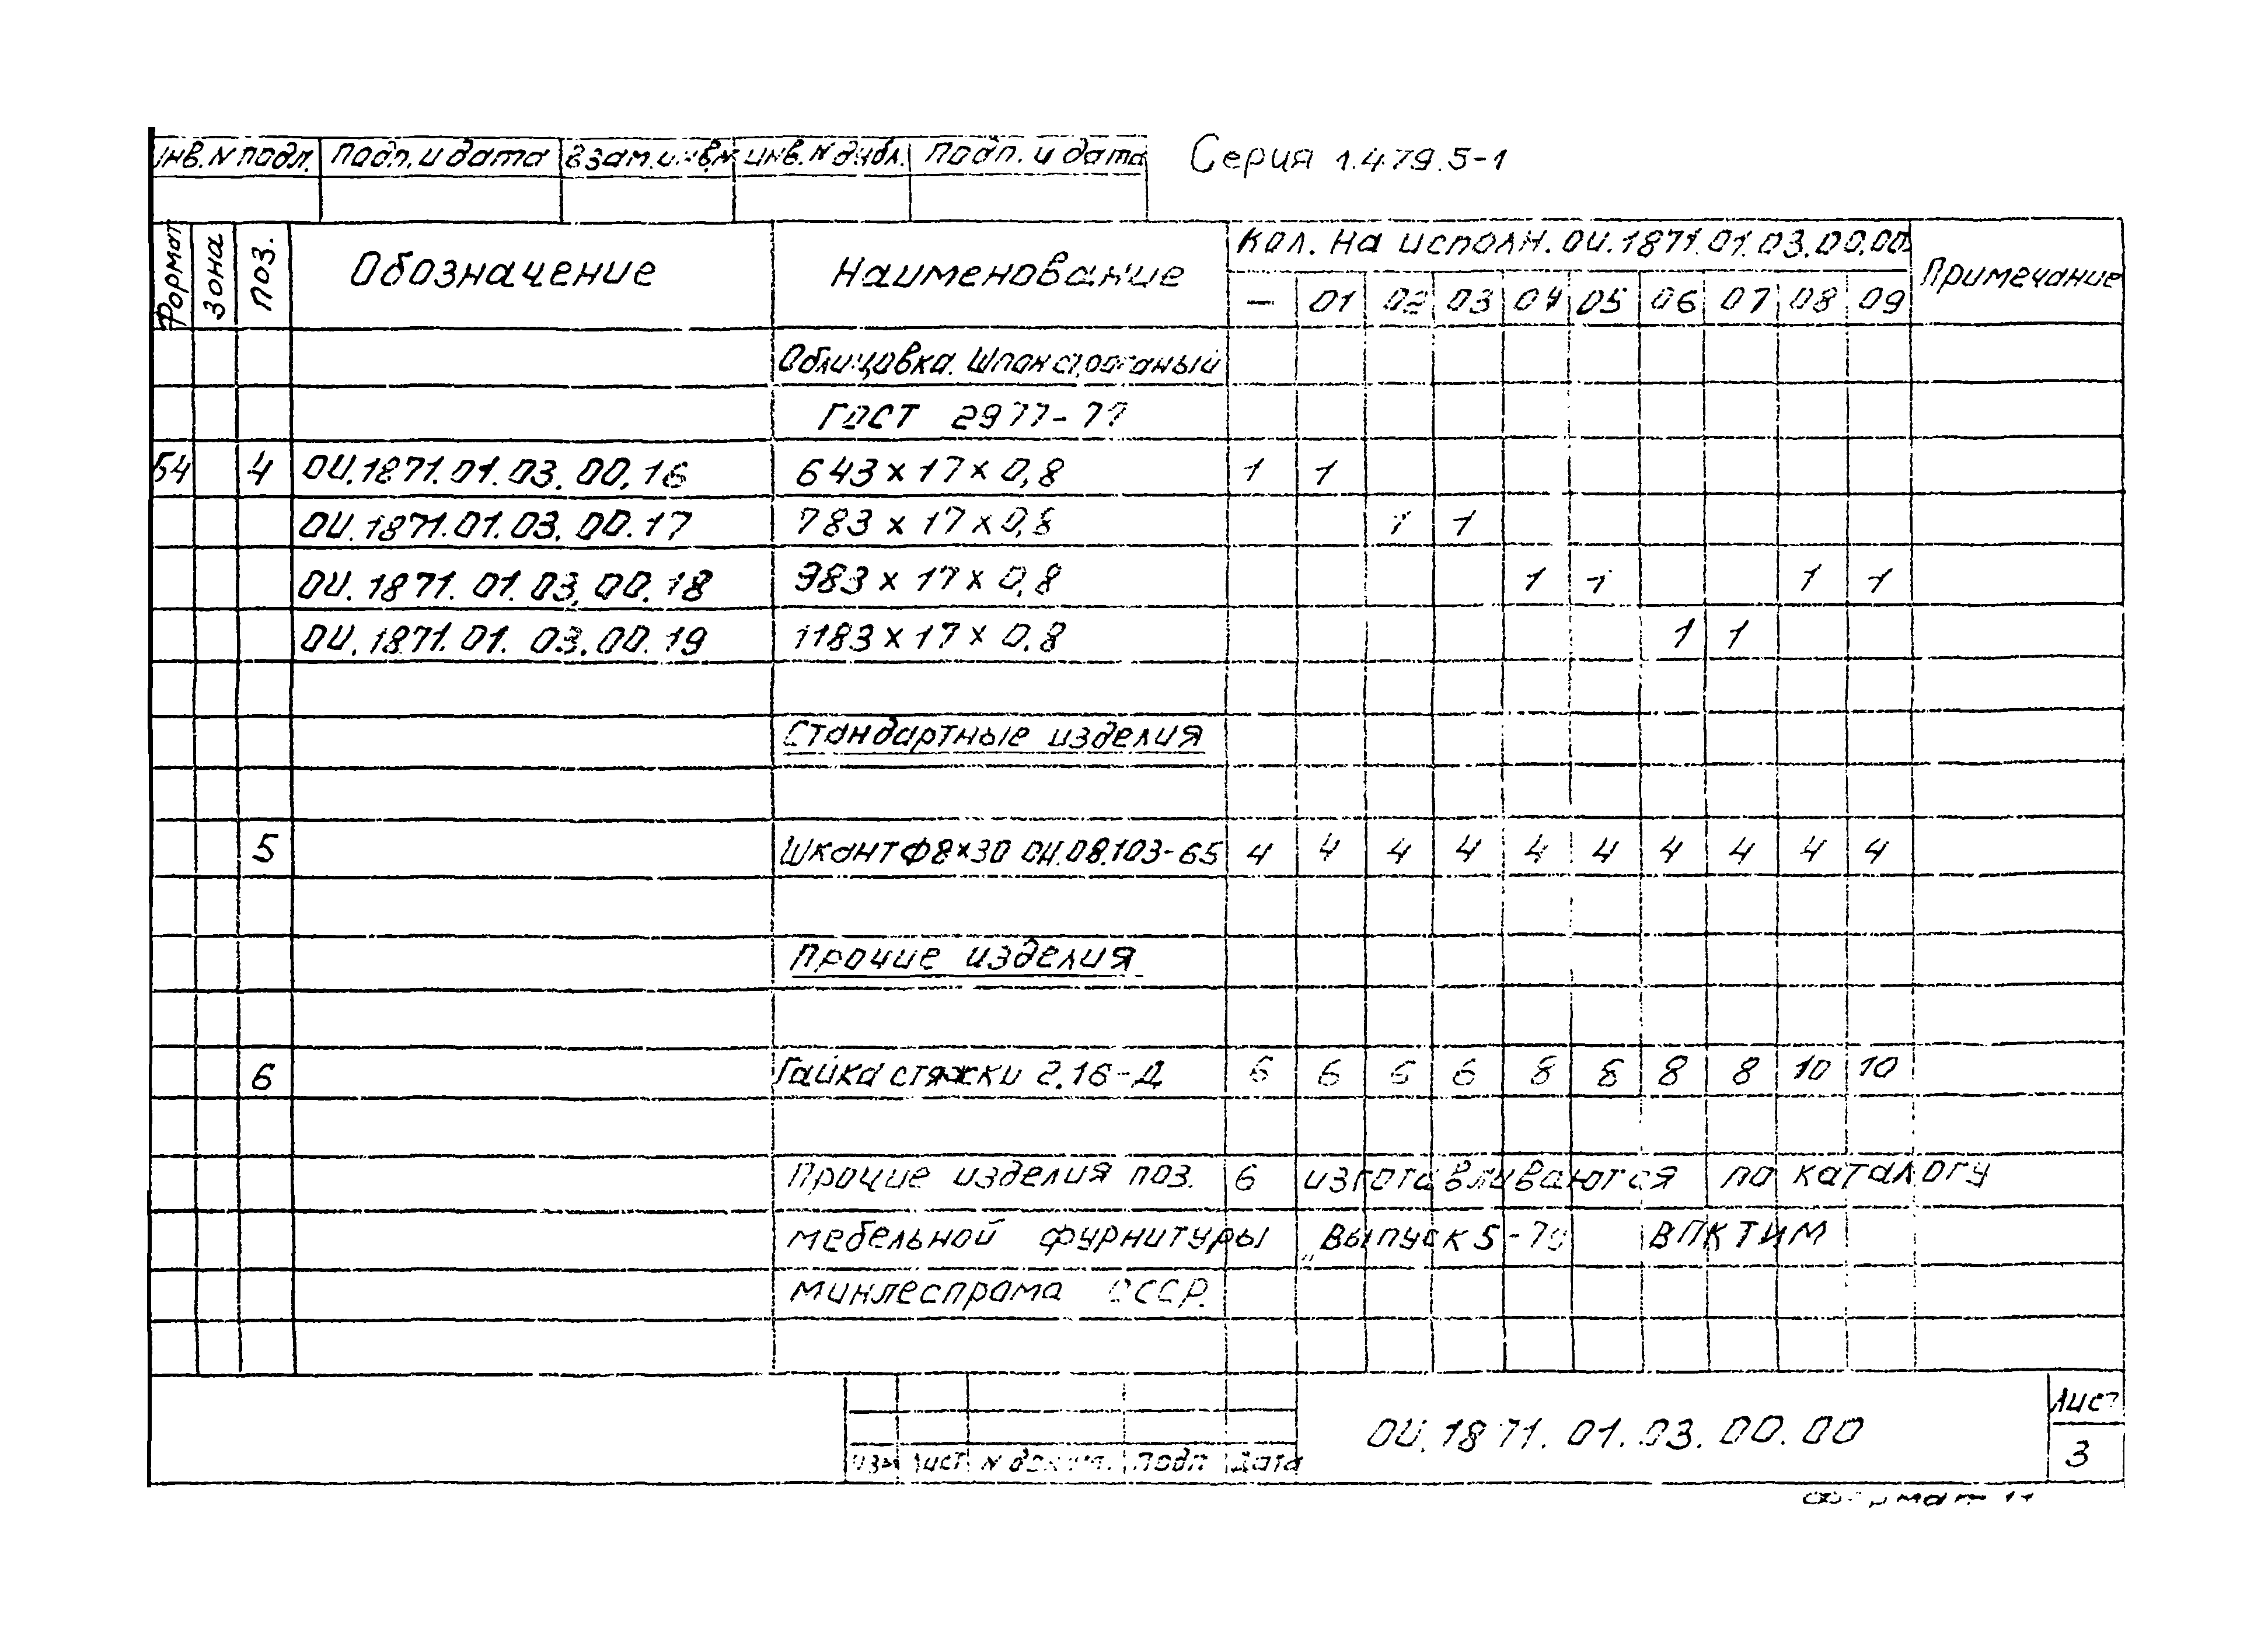 Инв. N подл. Подп. и дата Взам. инв. N Инв. N дубл. Подп. и дата Серия 1.479.5-1
Формат Зона Поз. Обозначение Наименование Кол. на исполн. ОИ.1871.01.03.00.00 Примечание
— 01 02 03 04 05 06 07 08 09
Облицовка. Шпон строганый
ГОСТ 2977-77
Б4 4 ОИ.1871.01.03.00.16 643×17×0,8 1 1
ОИ.1871.01.03.00.17 783×17×0,8 1 1
ОИ.1871.01.03.00.18 983×17×0,8 1 1 1 1
ОИ.1871.01.03.00.19 1183×17×0,8 1 1
Стандартные изделия
5 Шкант Ф8×30 ОН.08.103-65 4 4 4 4 4 4 4 4 4 4
Прочие изделия
6 Гайка стяжки 2.16-Д 6 6 6 6 8 8 8 8 10 10
Прочие изделия поз. 6 изготавливаются по каталогу
мебельной фурнитуры „Выпуск 5- ВПКТИМ
минлеспрома СССР.
ОИ.1871.01.03.00.00 Лист
Изм Лист N докум. Подп Дата 3
Формат 11